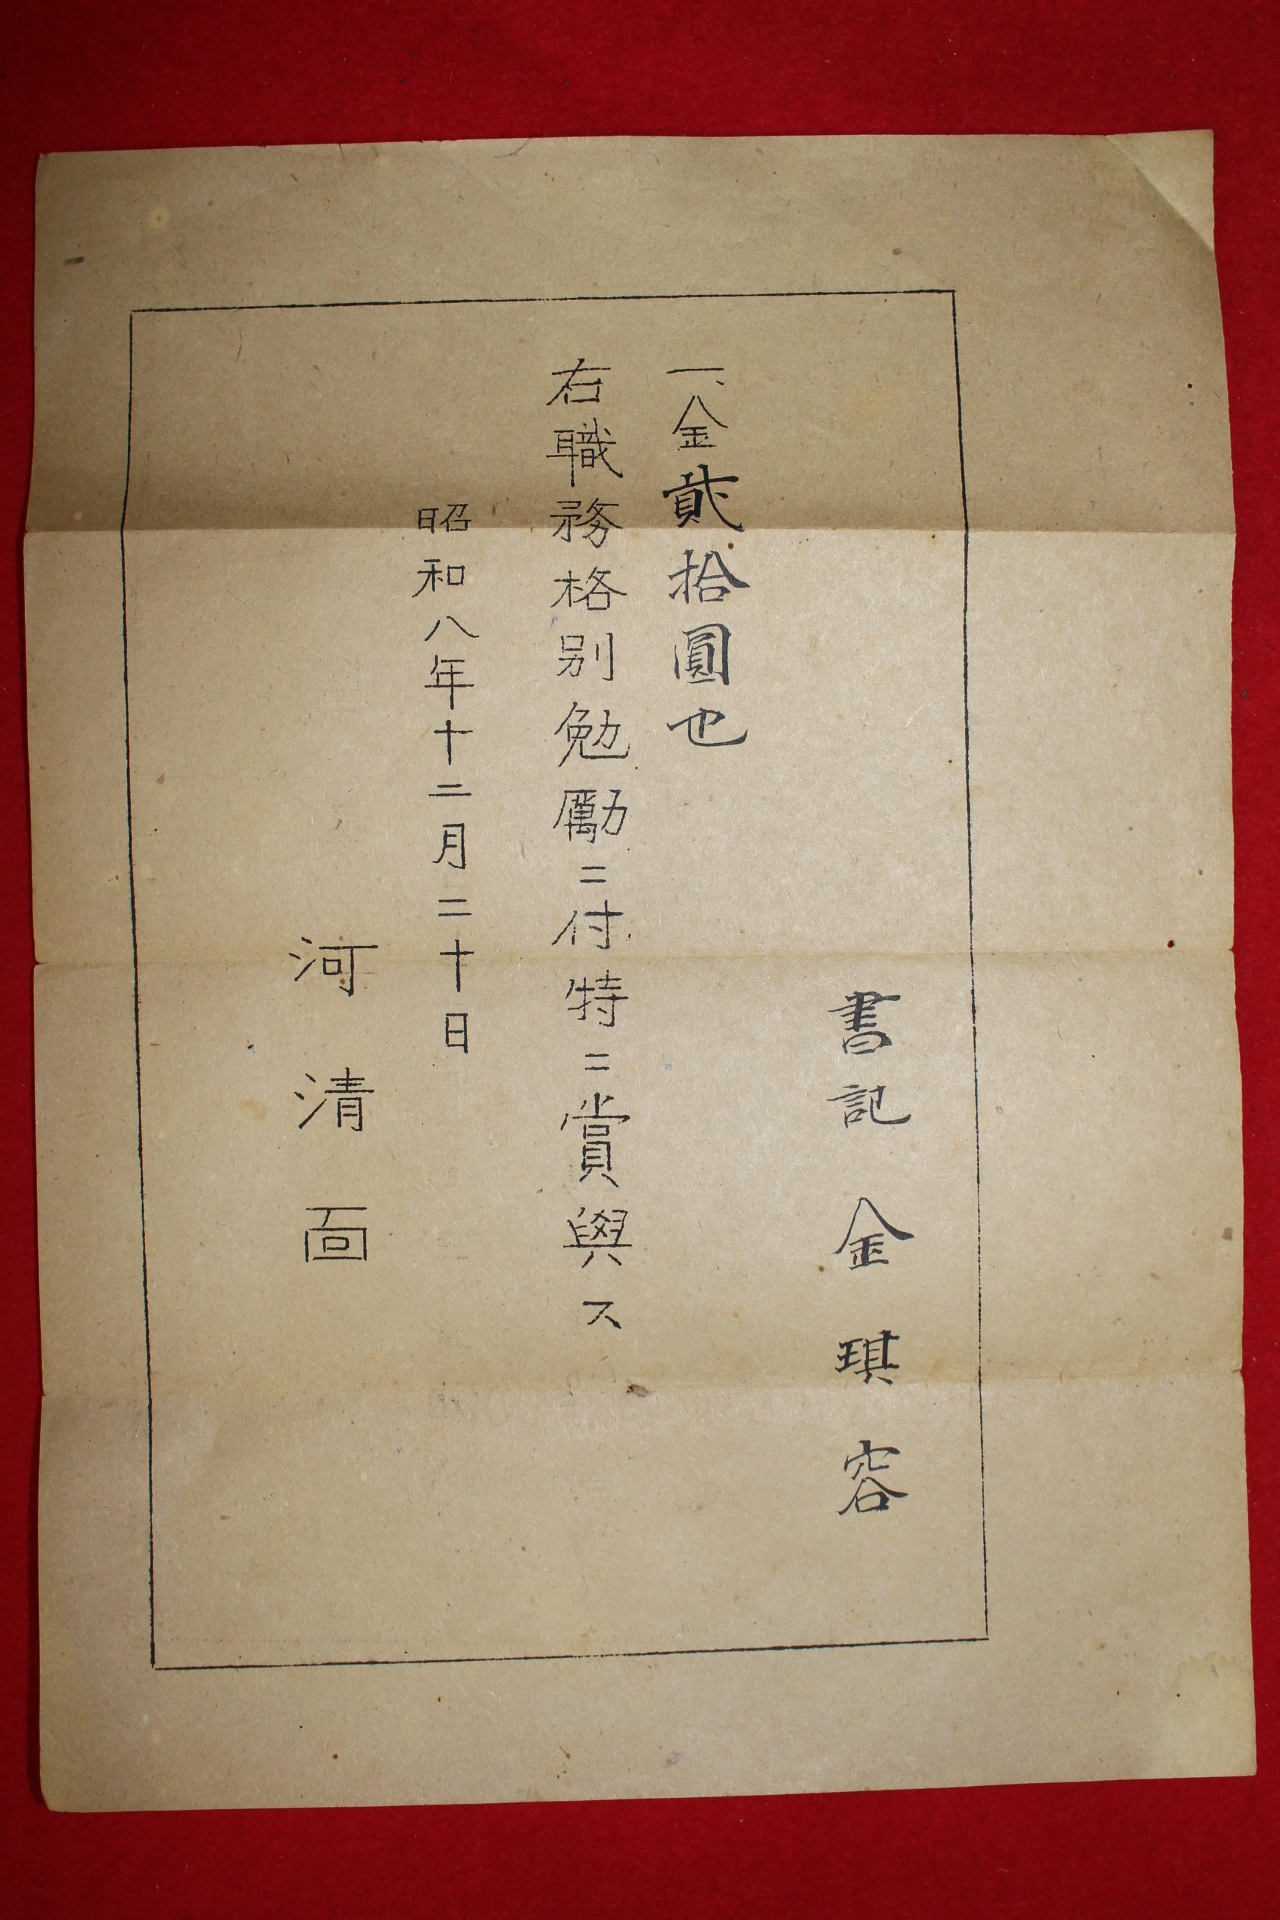 書記 金琪容
一、金貳拾圓也
右職務格別勉勵ニ付特ニ賞與ス
昭和八年十二月二十日
河清面